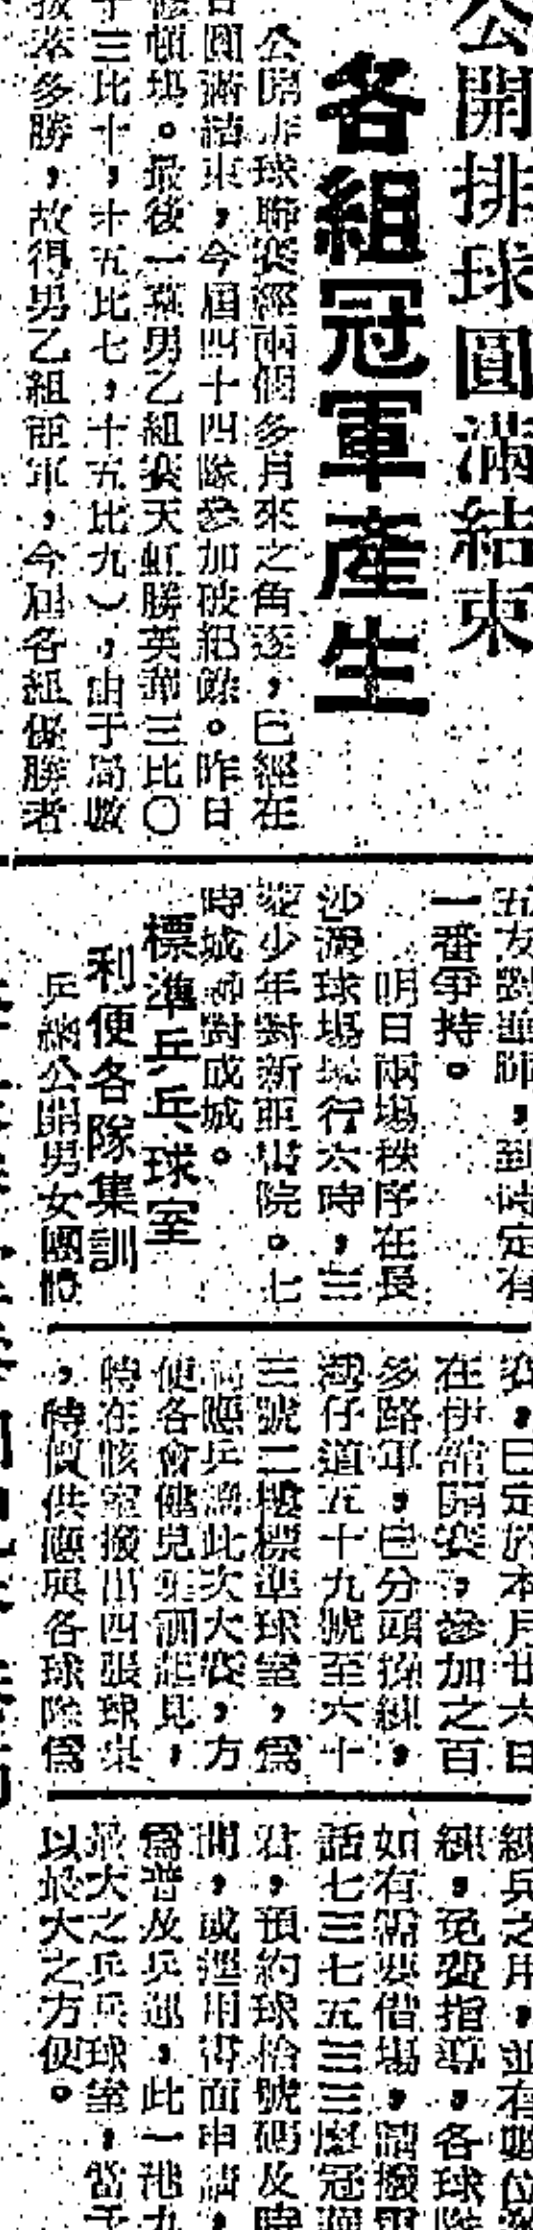 公開排球圓滿結束
各組冠軍產生
公開排球聯賽經兩個多月來之角逐，已經在
圓滿結束，今屆四十四隊參加破紀錄。昨日
修頓場。最後一幕男乙組賽天虹勝英華三比〇
十三比十，十五比七，十五比九），由于局數
多勝，故得男乙組亞軍，今屆各組優勝者
五女對亞師，到時定有
一番爭持。
明日兩場秩序在長
沙灣球場舉行六時，三
少年對新亞書院。七
時城師對成城。
標準乒乓球室
利便各隊集訓
乒總公開男女團體
賽，已定於本月廿六日
在伊館開賽，參加之百
多路軍，已分頭操練，
仔道五十九號至六十
三號二樓標準球室，爲
應乒總此次大賽，方
便各會健兒集訓起見，
特在該室撥出四張球桌
，特價供應與各球隊爲
練兵之用，並有數位
練，免費指導，各球隊
如有需要借場，請撥電
話七三七五三三與冠
君，預約球枱號碼及時
間，或逕用書面申請，
爲普及乒運，此一港九
最大之乒乓球室，當予
以最大之方便。